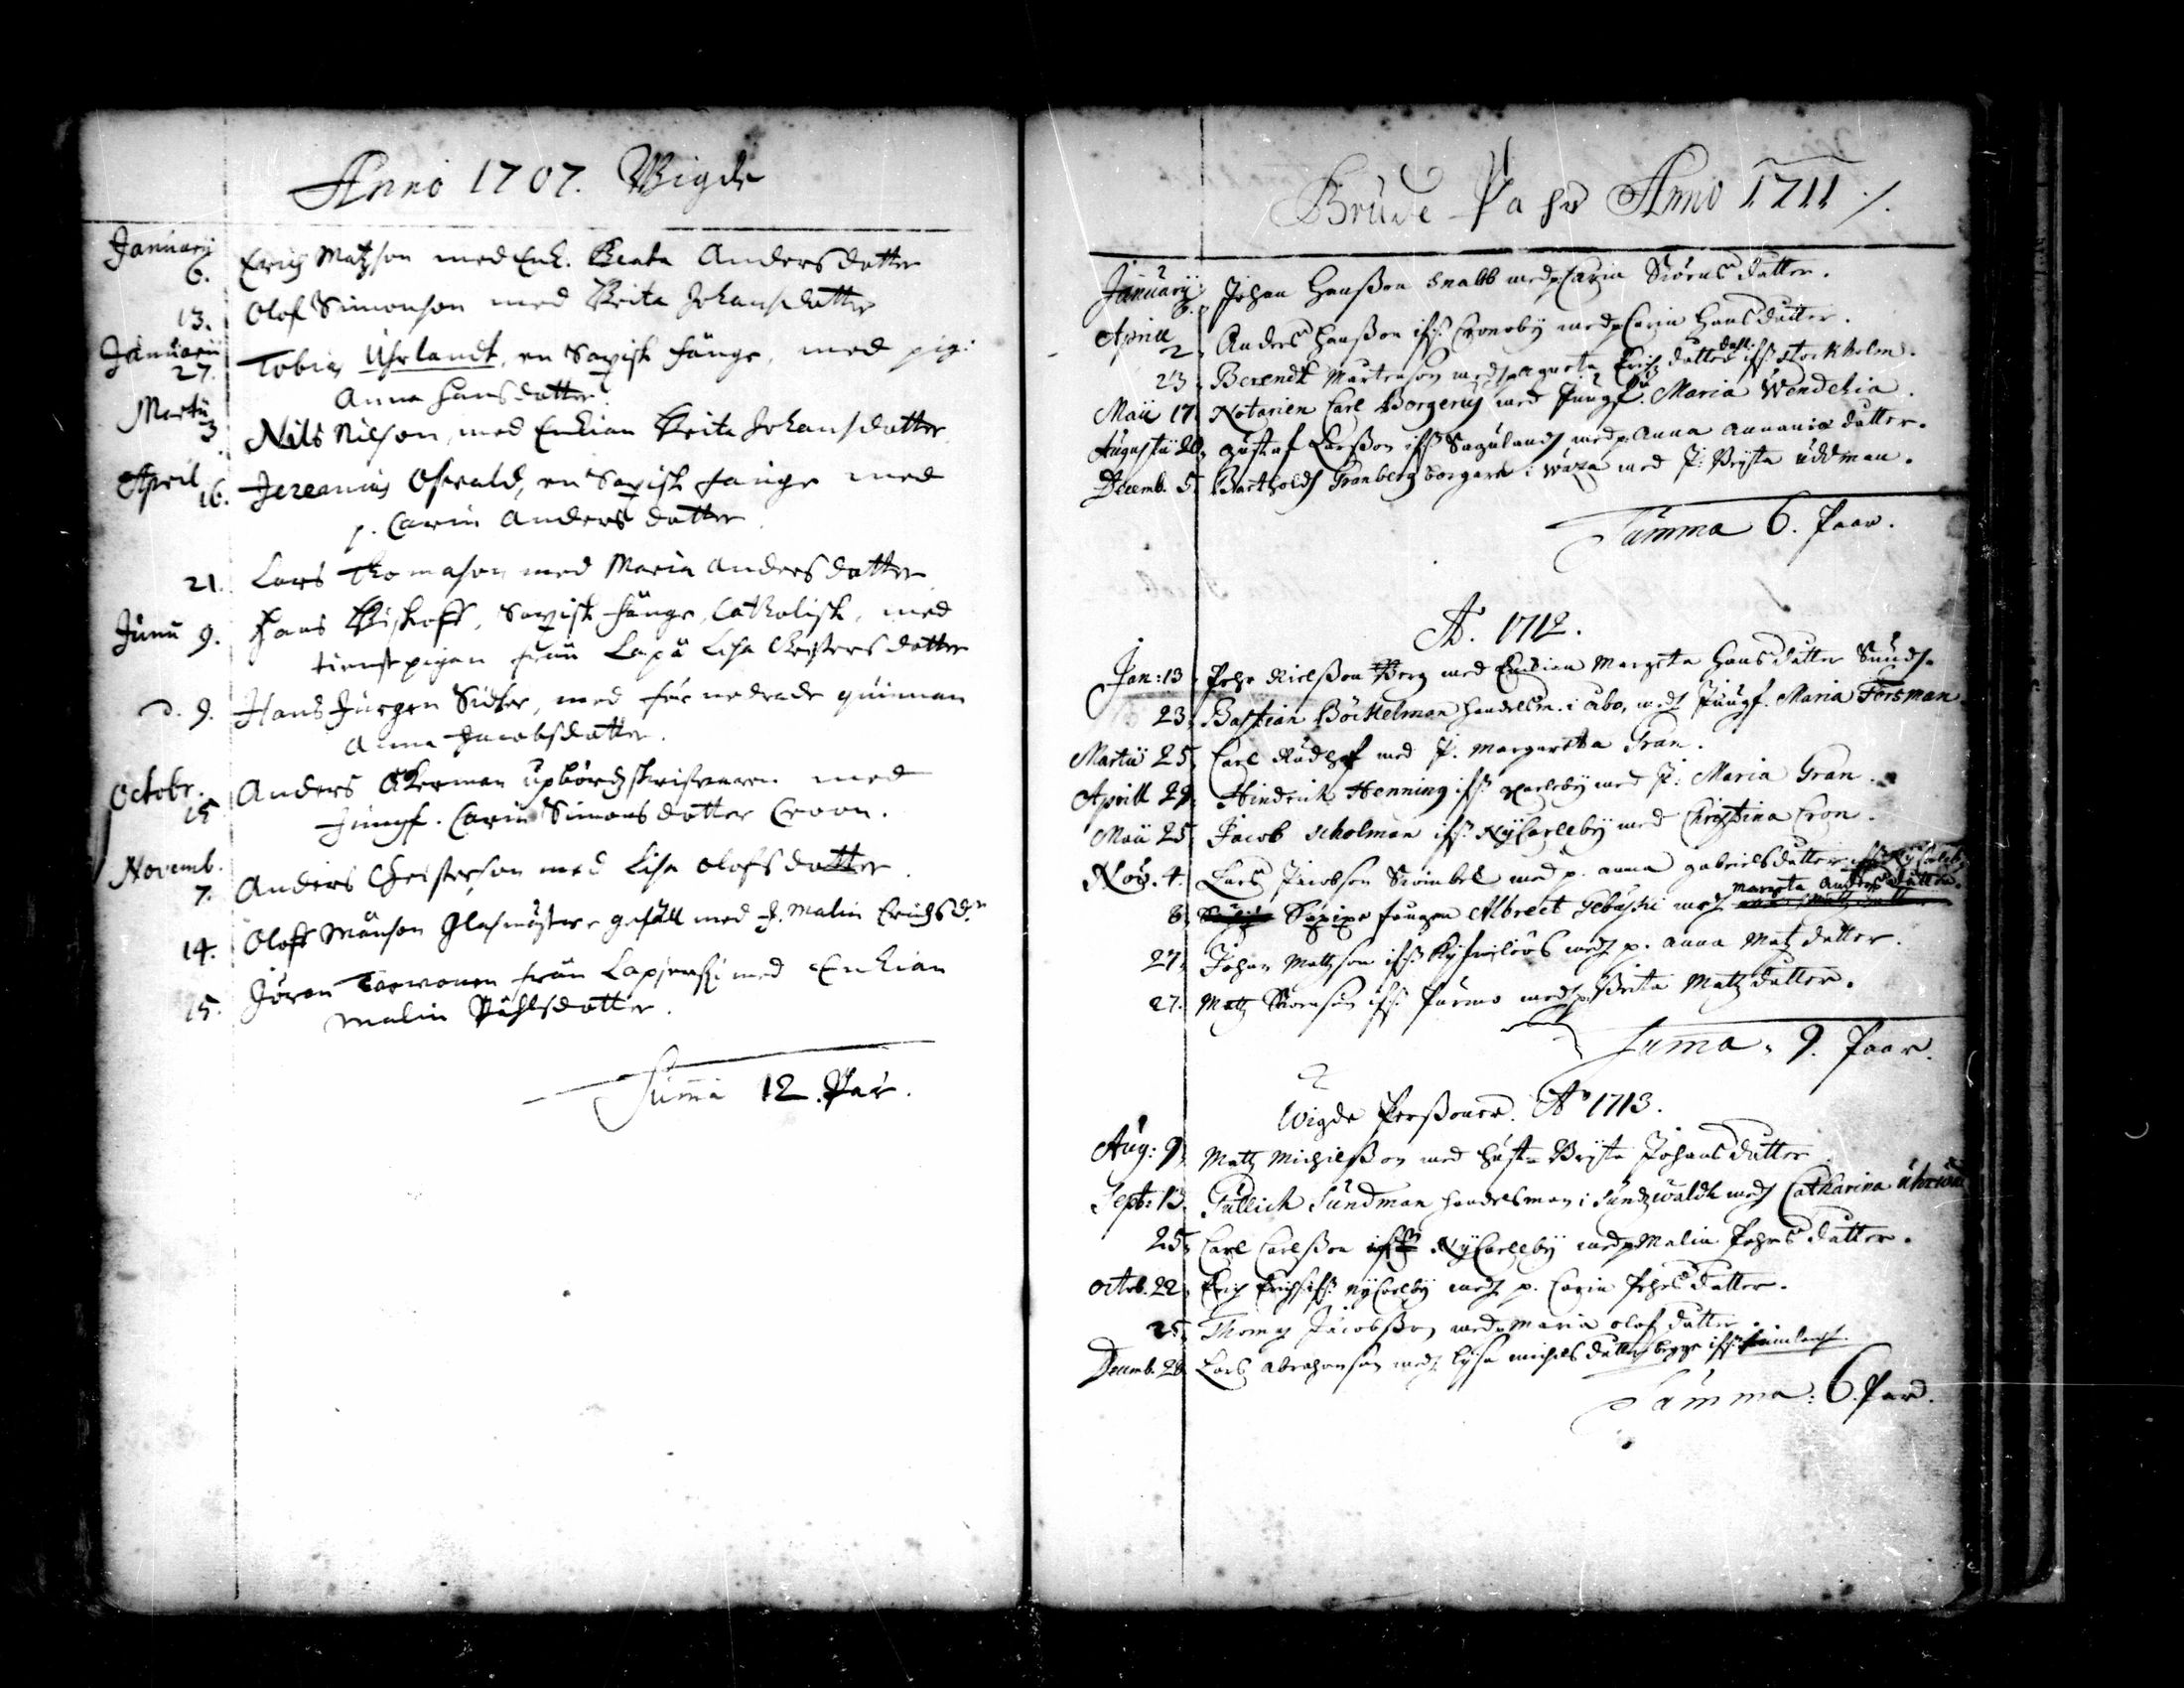 Anno 1707. Wigde
January 6. Erich Matzson med Enk. Beata Andersdotter
13. Olof Simonson med Brita Johansdotter
Januarii 27. Tobias Uhrlandt, en Saxisk fånge, med pig:
Anna Hansdotter.
Martii 3. Nils Nilson, med Enkian Brita Johansdotter
April 16. Jeremias Oswald, en Saxisk fånge med
p. Carin Andersdotter.
21. Lars Thomason med Maria Andersdotter
Junii 9. Hans Bishoff, Saxisk fånge, Catholisk, med
tienstepigan från Lapå Lisa Christersdotter
d. 9. Hans Jürgen med quinnan
Anna Jacobsdotter.
Octobr. 15 Anders Åkerman upbördzskrifwaren med
Jungf. Carin Simonsdotter Croon.
Novemb. 7. Anders Christerson med Lisa Olofsdotter.
14. Oloff Månson Glasmästare gesäll med P. Malin Erichsd:r
15. Jören från med Enkian
Malin Påhlsdotter.
Summa 12. Par.
Brude Pahr Anno 1711 /.
January 6. Johan Hansson Snabb med p Carin Siörensdatter.
Aprill 2, Anders Hansson ifr: Cronoby med p Carin Hansdatter.
23, Berendt Martenson med Agneta Erichdatter dahl: ifr: Stockholm.
Maii 17, Notarien Carl Borgerus med Jungf:u Maria Wendelia.
Augustii 20, Gustaf Larsson ifr: med p Anna Annaniædatter.
Decemb. 5, Barthold Granberg borgare i Waza med J: Brijta Uddman.
Summa 6. Paar.
A:o 1712.
Jan: 13, Pehr Nielsson Berg med Enkian Margeta Hansdatter Sund.
23, Bastian Böckelman handelsm. i Åbo, med Jungf. Maria Forsman.
Martii 25, Carl Rudhof med J. Margareta Gran.
Aprill 29, Hindrich Henning ifr: Carleby med J: Maria Gran.
Maii 25, Jacob Scholman ifr: NyCarleby med Christina Cron.
Nov. 4. Lars Jacobson med p. Anna Gabrielsdatter ifr: NyCarleby
8, Saxixe fången Albrect Gebaski med Margeta Andersdatter.
27, Johan Mattson ifr: med p. Anna Matzdatter.
27. Matz ifr: Purmo med p. Brita Matzdatter.
Summa, 9. Paar.
Wigde Perssoner. A:o 1713.
Aug: 9, Matz Michilsson med Hust. Brijta Johansdatter
Septr: 13. Gutlich Sundman handelsman i Sundzwaldh med Catharina
25, Carl Carlsson ifr: NyCarleby med p Malin Pehrsdatter.
Octob. 22, Erich Erichs: ifr: NyCarleby med p. Carin Pehrsdatter.
25, Thomas Jacobsson med Maria Olofsdatter.
Decemb. 28. Lars Abrahamson med Lisa Michelsdatter begge ifr:
Summa: 6. Par.